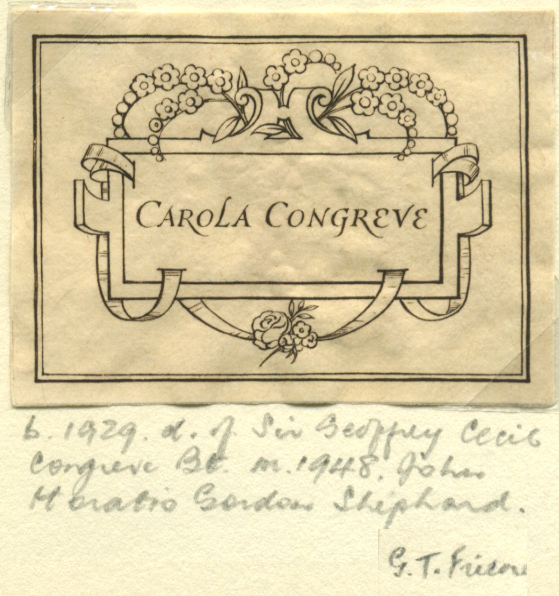 CAROLA CONGREVE
b. 1929. d. of Sir Geoffrey Cecil
Congreve Bt. m. 1948. John
Horatio Gordon Shephard.
G. T.